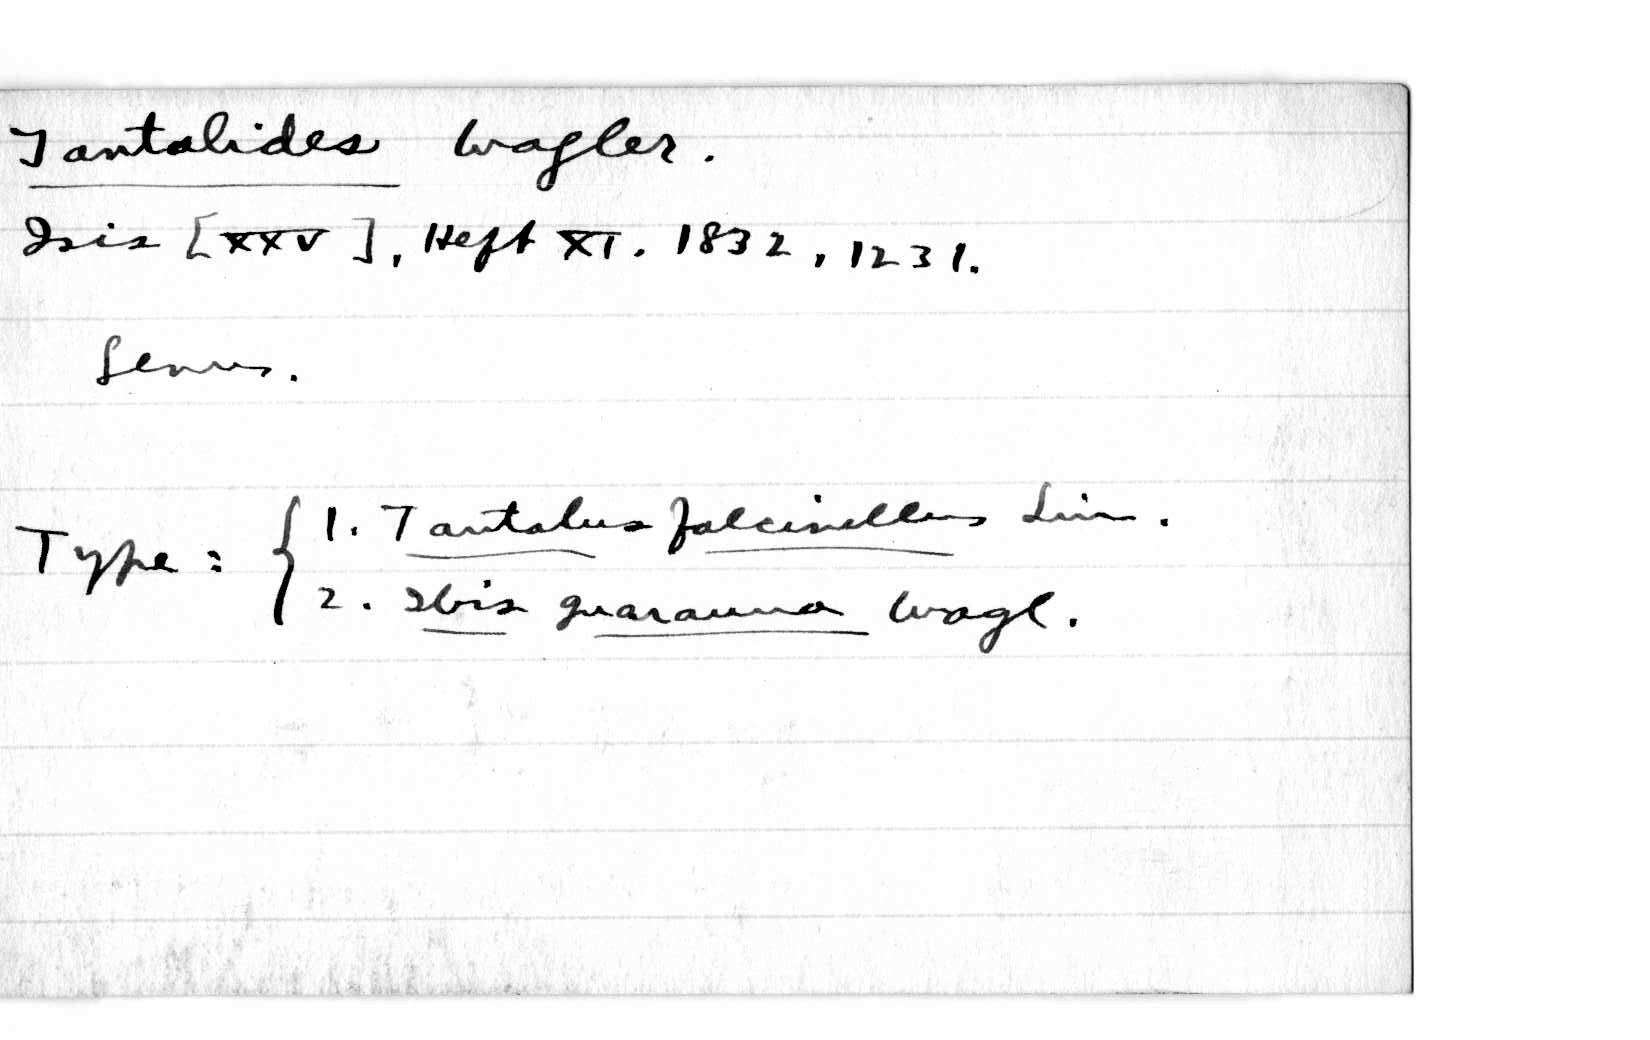 Tantalides Wagler.
Isis [XXV], Heft XI. 1832, 1231.
Genus.
Type: { 1. Tantalus falcinellus Lin.
2. Ibis guarauna Wagl.